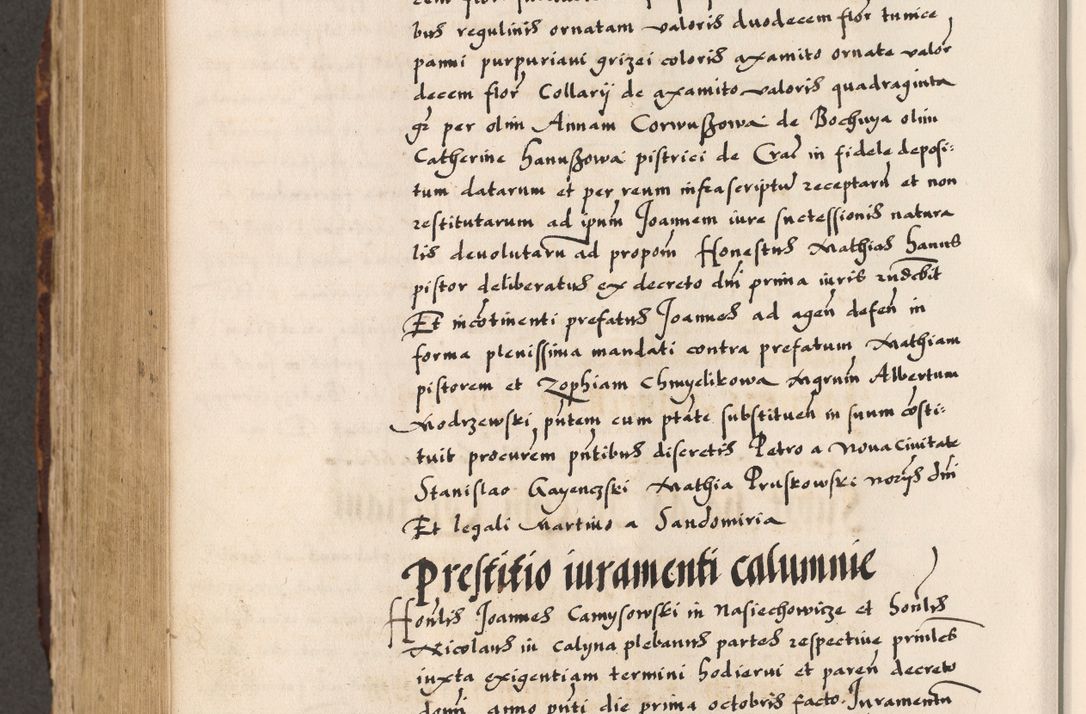 bus regulinis ornatam valoris duodecem flor tunice
panni purpuriani grizei coloris axamito ornate valor
decem flor Collarij de axamito valoris quadraginta
gr per olim Annam Corwußowa de Bochnya olim
Catherine hanußowa pistrici de Crac in fidele deposi:
tum datarum et per reum infrascriptu receptaru et non
restitutarum ad ipum Joannem iure successionis natura
lis deuolutaru ad propom Honestus Mathias hanus
pistor deliberatus ex decreto dni prima iuris rndebit
Et incotinenti prefatus Joannes ad agen defen in
forma plenissima mandati contra prefatum Mathiam
pistorem et Zophiam Chmyelikowa Mgrum Albertum
Modrzewski pntem cum ptate substituen in suum costi:
tuit procurem pntibus discretis Petro a Noua Ciuitate
Stanislao Gayenczski Mathia Pruskowski norijs dni
Et legali Martino a Sandomiria
Prestitio iuramenti calumnie
Honlis Joannes Camysowski in Nasiechowicze et honlis
Nicolaus in Calyna plebanus partes respectiue prinles
iuxta exigentiam termini hodierni et paren decreto
domi anno pnti die prima octobris facto Juramentu